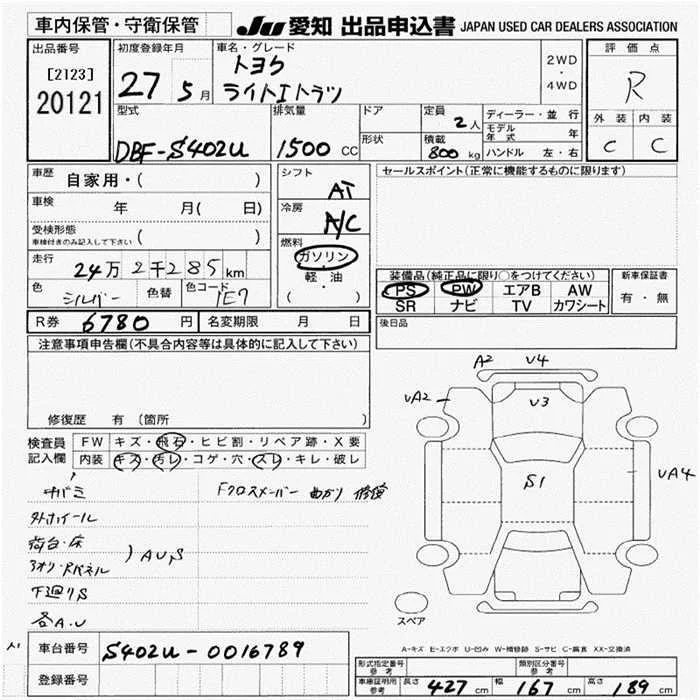 車内保管・守衛保管
JU 愛知 出品申込書 JAPAN USED CAR DEALERS ASSOCIATION
出品番号
[2123]
20121
初度登録年月
27 5月
車名・グレード
トヨタ
ライトエトラツ
2WD
・
4WD
評価点
R
外装 内装
C C
型式
DBF-S402U
排気量
1500 CC
ドア
形状
定員
2人
積載
800 kg
ディーラー・並行
モデル年式 年
ハンドル 左・右
車歴 自家用・( )
車検 年 月( 日)
受検形態
車検付きのみ記入して下さい ( )
走行 24万2千285km
色 シルバー 色替 色コード 1E7
シフト AT
冷房 A/C
燃料
ガソリン
・
軽・油
( )
セールスポイント(正常に機能するものに限ります)
装備品(純正品に限り○をつけてください)
PS PW エアB AW
SR ナビ TV カワシート
新車保証書
有・無
R券 6780円 名変期限 月 日
後日品
注意事項申告欄(不具合内容等は具体的に記入して下さい)
修復歴 有(箇所 )
検査員記入欄
FW キズ・飛石・ヒビ割・リペア跡・X要
内装 キズ・汚レ・コゲ・穴・スレ・キレ・破レ
サバミ
Fクロスメーバー 曲がり 修復
外ホイール
荷台・床
アオリ・Rパネル
) AU,S
下廻りS
各A.U
A2 U4
UA2
U3
S1
UA4
スペア
A1
車台番号 S402U-0016789
登録番号
A-キズ E-エクボ U-凹み W-補修跡 S-サビ C-腐食 XX-交換済
形式指定番号 参考
類別区分番号 参考
車庫証明用 参考 長さ 427 cm 幅 167 cm 高さ 189 cm